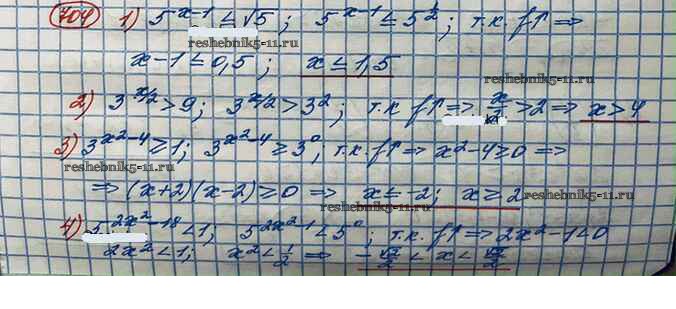 704 1) 5^(x-1) ≤ √5; 5^(x-1) ≤ 5^(1/2); т.к. f↑ ⇒
reshebnik5-11.ru
reshebnik5-11.ru
x-1 ≤ 0,5; x ≤ 1,5
reshebnik5-11.ru
2) 3^(x/2) > 9; 3^(x/2) > 3^2; т.к. f↑ ⇒ x/2 > 2 ⇒ x > 4
3) 3^(x^2-4) ≥ 1; 3^(x^2-4) ≥ 3^0; т.к. f↑ ⇒ x^2-4 ≥ 0 ⇒
reshebnik5-11.ru
⇒ (x+2)(x-2) ≥ 0 ⇒ x ≤ -2; x ≥ 2
reshebnik5-11.ru
4) 5^(2x^2-18) < 1; 5^(2x^2-1) < 5^0; т.к. f↑ ⇒ 2x^2-1 < 0
2x^2 < 1; x^2 < 1/2 ⇒ -√2/2 < x < √2/2